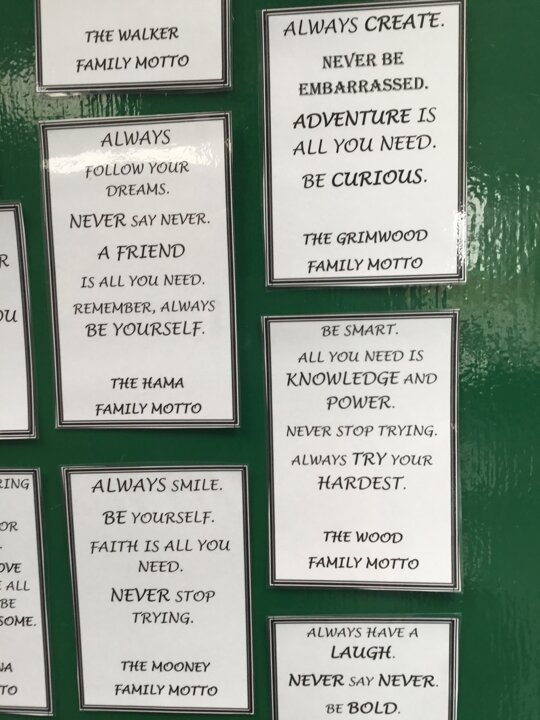 THE WALKER
FAMILY MOTTO
ALWAYS CREATE.
NEVER BE
EMBARRASSED.
ADVENTURE IS
ALL YOU NEED.
BE CURIOUS.
THE GRIMWOOD
FAMILY MOTTO
ALWAYS
FOLLOW YOUR
DREAMS.
NEVER SAY NEVER.
A FRIEND
IS ALL YOU NEED.
REMEMBER, ALWAYS
BE YOURSELF.
THE HAMA
FAMILY MOTTO
BE SMART.
ALL YOU NEED IS
KNOWLEDGE AND
POWER.
NEVER STOP TRYING.
ALWAYS TRY YOUR
HARDEST.
THE WOOD
FAMILY MOTTO
ALL
BE
ALWAYS SMILE.
BE YOURSELF.
FAITH IS ALL YOU
NEED.
NEVER STOP
TRYING.
THE MOONEY
FAMILY MOTTO
ALWAYS HAVE A
LAUGH.
NEVER SAY NEVER.
BE BOLD.